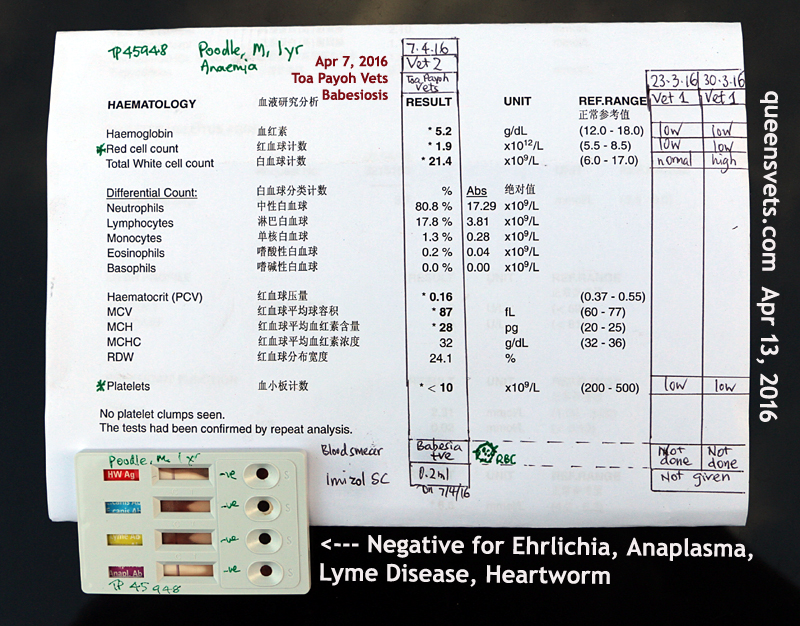 TP 45948 Poodle, M, 1yr
Anaemia
Apr 7, 2016
Toa Payoh Vets
Babesiosis
7.4.16
Vet 2
Toa Payoh
Vets
23.3.16 30.3.16
Vet 1 Vet 1
HAEMATOLOGY 血液研究分析 RESULT UNIT REF.RANGE
正常参考值
Haemoglobin 血红素 * 5.2 g/dL (12.0 - 18.0) low low
*Red cell count 红血球计数 * 1.9 x10¹²/L (5.5 - 8.5) low low
Total White cell count 白血球计数 * 21.4 x10⁹/L (6.0 - 17.0) normal high
Differential Count: 白血球分类计数 % Abs 绝对值
Neutrophils 中性白血球 80.8 % 17.29 x10⁹/L
Lymphocytes 淋巴白血球 17.8 % 3.81 x10⁹/L
Monocytes 单核白血球 1.3 % 0.28 x10⁹/L
Eosinophils 嗜酸性白血球 0.2 % 0.04 x10⁹/L
Basophils 嗜碱性白血球 0.0 % 0.00 x10⁹/L
Haematocrit (PCV) 红血球压量 * 0.16 (0.37 - 0.55)
MCV 红血球平均球容积 * 87 fL (60 - 77)
MCH 红血球平均血红素含量 * 28 pg (20 - 25)
MCHC 红血球平均血红素浓度 32 g/dL (32 - 36)
RDW 红血球分布宽度 24.1 %
*Platelets 血小板计数 * < 10 x10⁹/L (200 - 500) low low
No platelet clumps seen.
The tests had been confirmed by repeat analysis.
Blood smear Babesia +ve RBC Not done Not done
Imizol SC 0.2ml on 7/4/16 Not given
Poodle, M, 1 yr
HW Ag -ve S
-ve S
-ve S
Anapl. Ab -ve S
TP 45948
<--- Negative for Ehrlichia, Anaplasma,
Lyme Disease, Heartworm
queensvets.com Apr 13, 2016